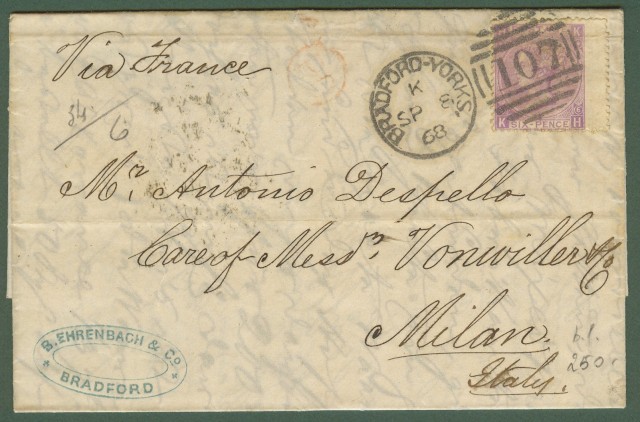 Via France
34
6
BRADFORD-YORKS
K
SP
68
107
K SIX-PENCE H
Mr. Antonio Despello
Care of Messrs. Vonwiller & Co
Milan.
Italy.
B. EHRENBACH & Co.
BRADFORD
b.l.
250.-